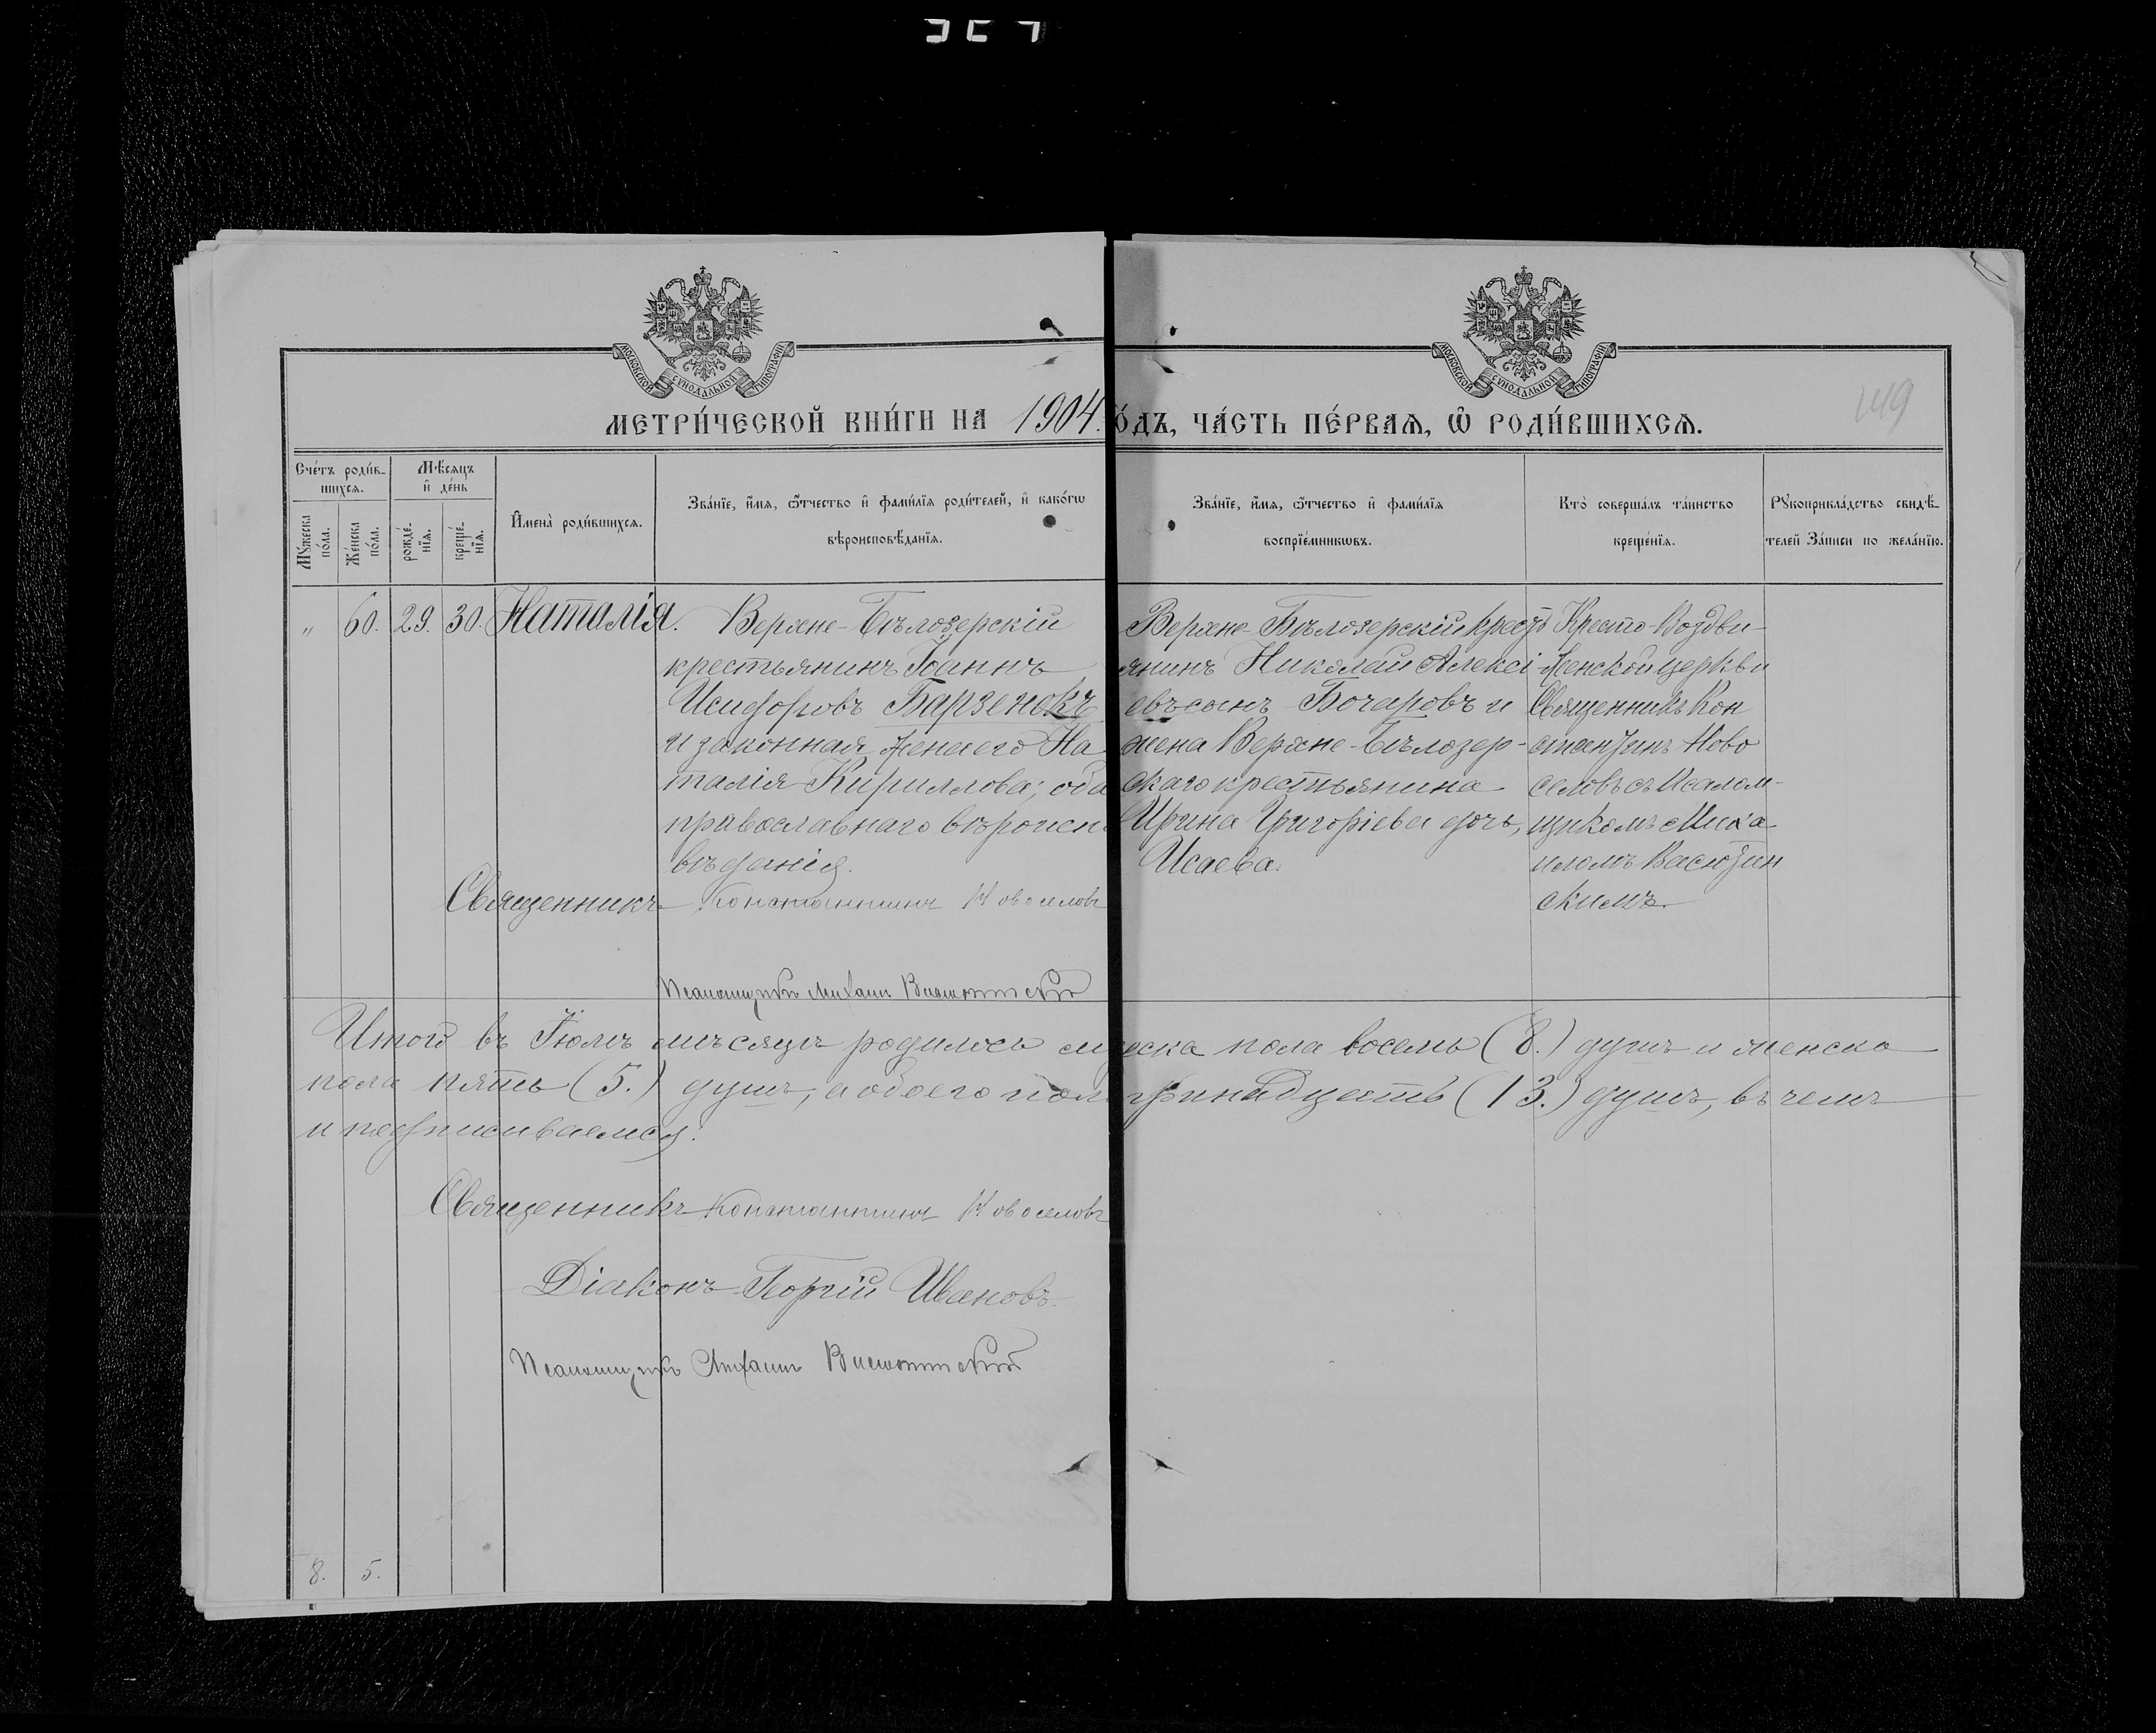 МОСКОВСКОЙ СѴНОДАЛЬНОЙ ТИПОГРАФІИ
МОСКОВСКОЙ СѴНОДАЛЬНОЙ ТИПОГРАФІИ
149
МЕТРИ́ЧЕСКОЙ КНИ́ГИ НА 1904. О́ДЪ, ЧА́СТЬ ПЕ́РВАѦ, Ѡ҆ РОДИ́ВШИХСѦ.
Сче́тъ роди́вшихсѧ.
Мꙋ́жеска по́ла.
Же́нска по́ла.
Мѣ́сѧцъ и҆ де́нь
рожде́нїѧ.
креще́нїѧ.
И҆мена̀ роди́вшихсѧ.
Зва́нїе, и҆́мѧ, ѻ҆́тчество и҆ фами́лїѧ роди́телей, и҆ како́гѡ
вѣроисповѣ́данїѧ.
Зва́нїе, и҆́мѧ, ѻ҆́тчество и҆ фами́лїѧ
воспрїе́мникѡвъ.
Кто̀ соверша́лъ та́инство
креще́нїѧ.
Рꙋкоприкла́дство свидѣ́-
телей За́писи по жела́нїю.
„ 60. 29. 30. Наталія.
Верхне-Бѣлозерскій
крестьянинъ Іоаннъ
Исидоровъ Барзенокъ
и законная жена его На
талія Кириллова; оба
православнаго вѣроисп
вѣданія.
Священникъ Константинъ Новоселовъ
Псаломщикъ Михаилъ Васютинскій
Верхне-Бѣлозерскій крест
янинъ Николай Алексі
евъ сынъ Бочаровъ и
жена Верхне-Бѣлозер-
скаго крестьянина
Ирина Григоріева дочь,
Исаева.
Кресто-Воздви-
женской церкви
Священникъ Кон
стантинъ Ново
селовъ съ Псалом-
щикомъ Миха-
иломъ Васютин
скимъ.
Итого въ Іюлѣ мѣсяцѣ родилось муж еска пола восемь (8.) душъ и женска
пола пять (5.) душъ, а обоего пола тринадцать (13.) душъ, въ чемъ
и подписиваемся:
Священникъ Константинъ Новоселовъ
Діаконъ Георгій Ивановъ.
Псаломщикъ Михаилъ Васютинскій
8. 5.